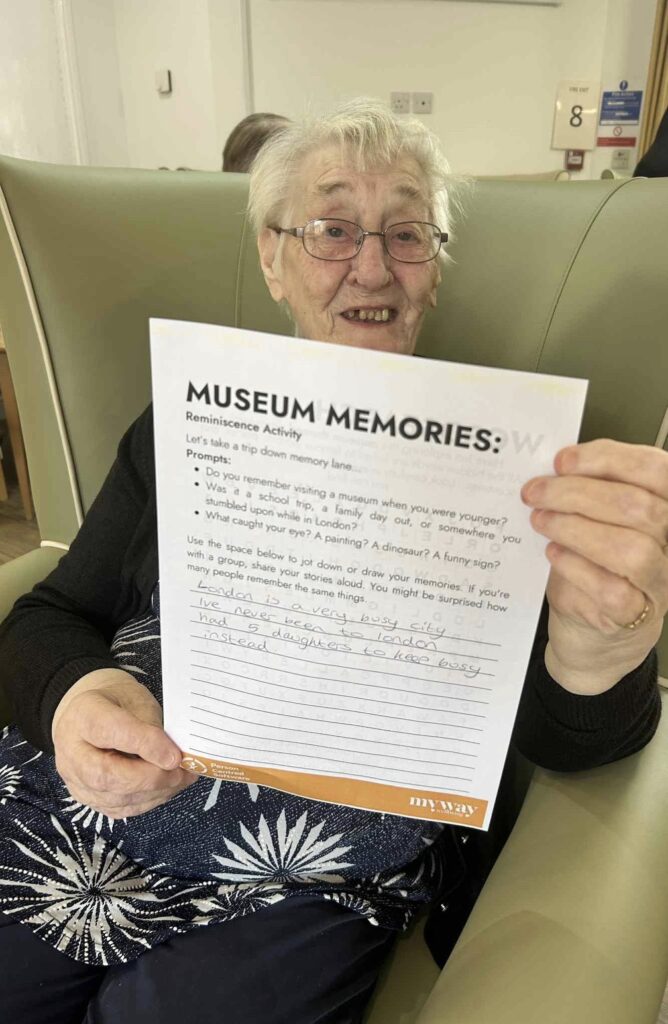 FIRE EXIT
8
MUSEUM MEMORIES:
Reminiscence Activity
Let's take a trip down memory lane...
Prompts:
• Do you remember visiting a museum when you were younger?
• Was it a school trip, a family day out, or somewhere you
stumbled upon while in London?
• What caught your eye? A painting? A dinosaur? A funny sign?
Use the space below to jot down or draw your memories. If you're
with a group, share your stories aloud. You might be surprised how
many people remember the same things.
London is a very busy city
I've never been to london
had 5 daughters to keep busy
instead
Person
Centred
Software
myway